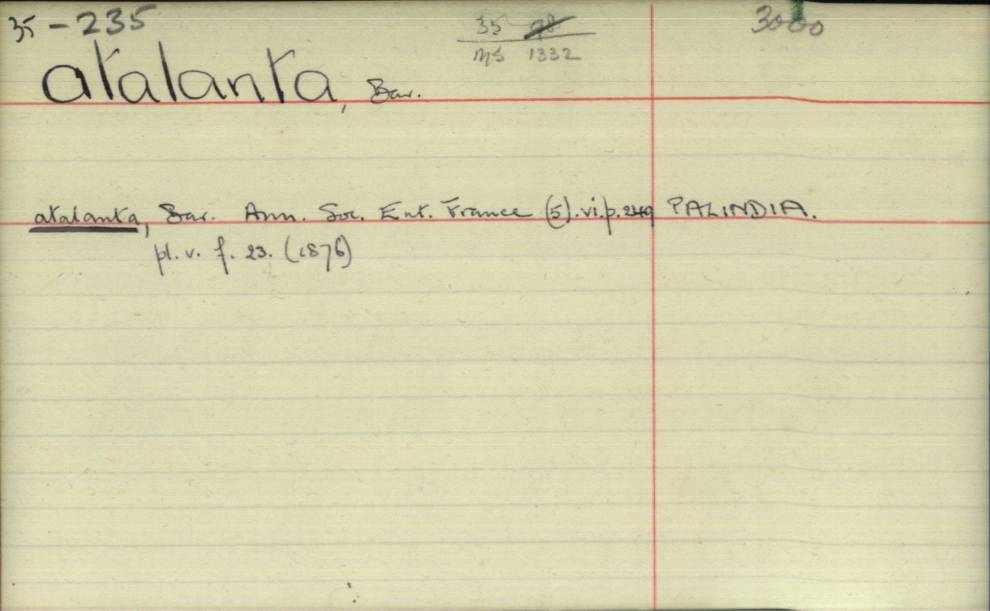 35-235
35
MS 1332
3000
atalanta, Bar.
atalanta, Bar. Ann. Soc. Ent. France (5).vi.p. PALINDIA.
pl. v. f. 23. (1876)